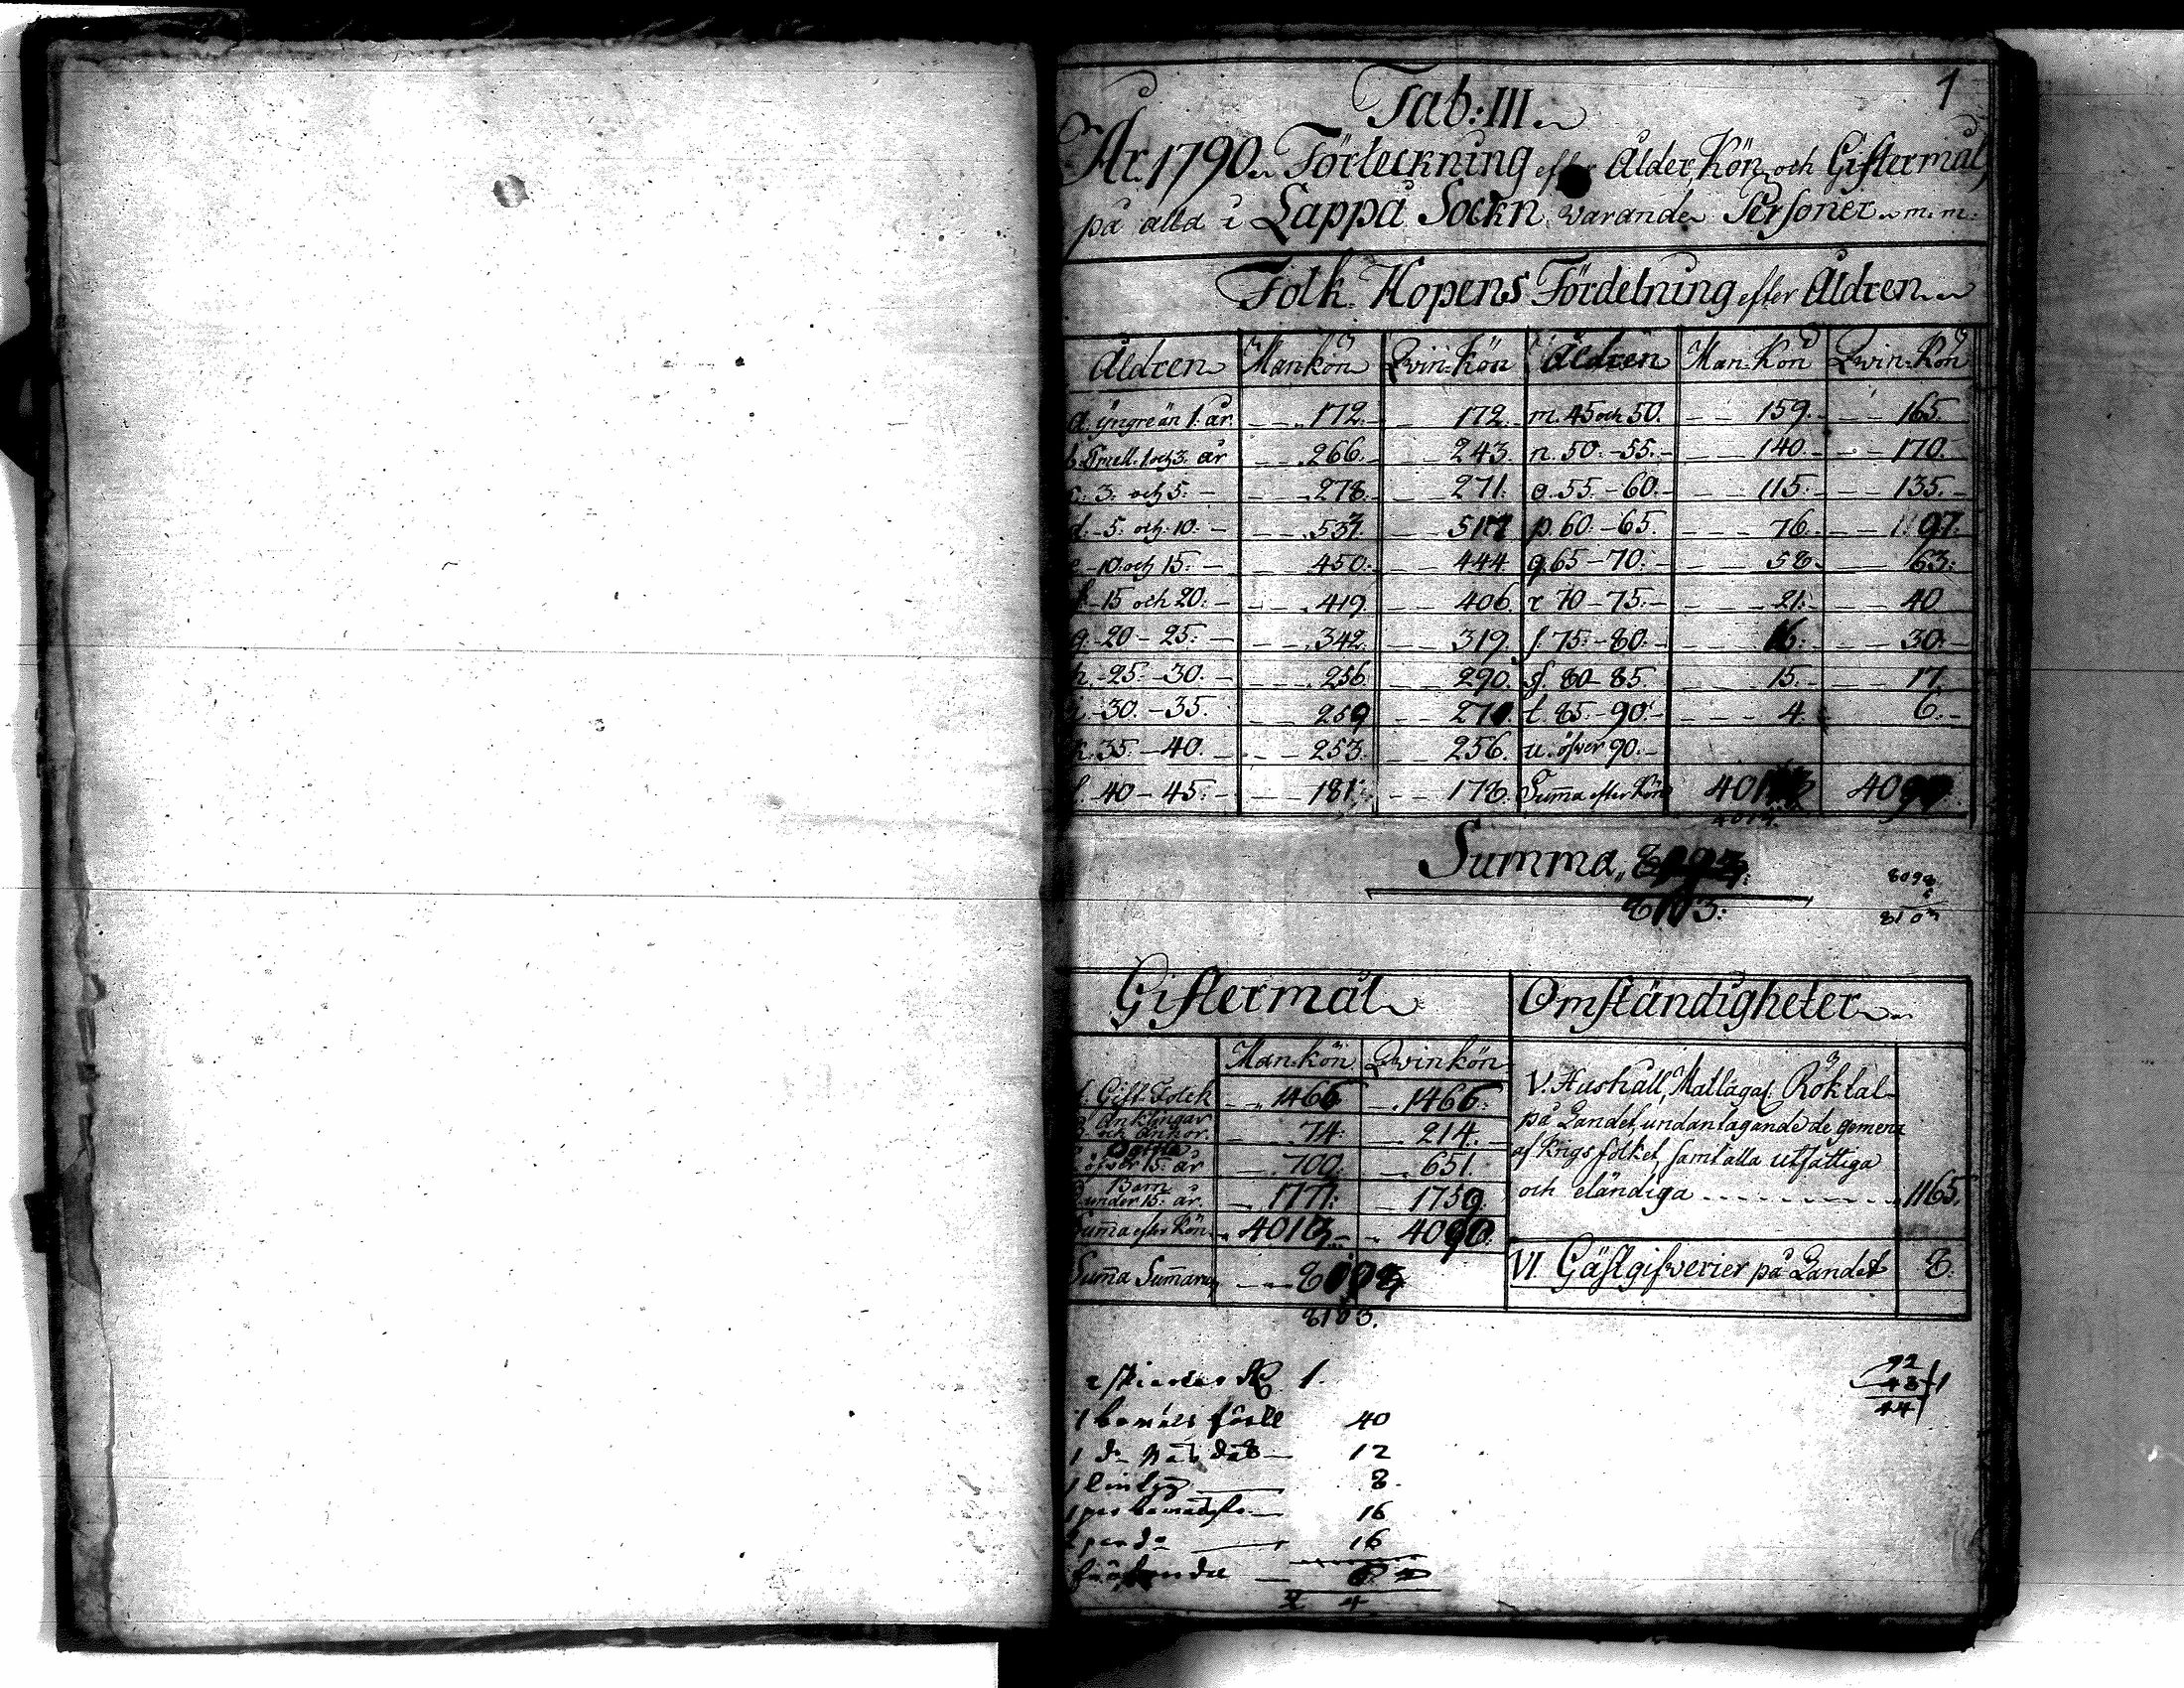 1
Tab: III.
År 1790. Förteckning efter Ålder, Kön och Giftermål,
på alla i Lappå Sockn varande Personer m.m.
Folk Hopens Fördelning efter Åldren
Åldren Mankön Qvin-Kön Åldren Man-Kön Qvin-Kön
a. yngre än 1. år. 172. 172. m. 45 och 50. 159. 165.
b. Emell. 1 och 3. år 266. 243. n. 50. - 55. 140. 170.
c. 3. och 5. 278. 271. o. 55. - 60. 115. 135.
d. 5. och 10. 533. 517 p. 60. - 65. 76. 97.
e. 10. och 15. 450. 444 q. 65 - 70. 58. 63.
f. 15 och 20. 419. 406. r. 70 - 75. 21. 40
g. 20 - 25. 342. 319. s. 75. - 80. 16. 30.
h. 25. - 30. 256. 290. ss. 80 - 85. 15. 17.
30. - 35. 259 t. 85. - 90. 4. 6.
k. 35. - 40. 253. 256. u. öfver 90.
l. 40 - 45. 181. 178. Summa efter Kön
4013.
Summa,
8103.
8098
8103
Giftermål Omständigheter
Mankön Qvinkön
Gift-Folck 1466 1466.
Änklingar och Änkor. 74. 214.
öfver 15. år 700. 651.
Barn under 15. år. 1777. 1759.
Summa efter Kön 4013 4090.
Suma Sumarum
8103.
V. Hushåll, Matlagal. Röktal
på Landet, undantagande de gemena
af Krigsfolket, samt alla utfattiga
och eländiga 1165.
VI Gästgifverier på Landet 8.
1.
40
1 d:o 12
8.
16
16
4
92
48
44
1